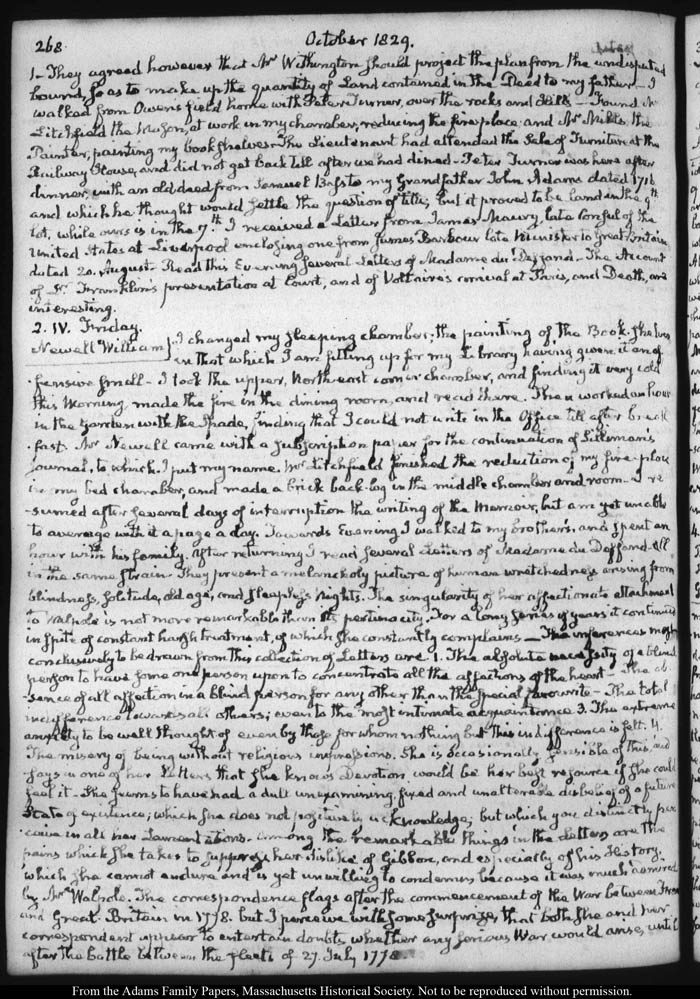 268
October 1829.
1— They agreed however that Mr Withington should project the plan from the undisputed
bound, so as to make up the quantity of Land contained in the Deed to my father— I
walked from Owen's field home with Peter Turner, over the rocks and Hills— Found Mr
Litchfield the Mason, at work in my chamber, reducing the fire place and Mr
Painter, painting my book shelves— The Lieutenant had attended the Sale of Furniture at the
Railway House, and did not get back till after we had dined— Peter Turner was here after
dinner, with an old deed from Samuel Bass to my Grandfather John Adams dated
and which he thought would settle the question of title; but it proved to be land in the 9th
lot, while ours is in the 7th. I received a Letter from James Maury, late Consul of the
United States at Liverpool enclosing one from James Barbour late Minister to Great Britain,
dated 20. August— Read this Evening several Letters of Madame du Deffand— The Account
of Dr Franklin's presentation at Court, and of Voltaire's arrival at Paris, and Death, are
interesting.
2. IV. Friday.
Newell William
I changed my sleeping chamber; the painting of the Book shelves
in that which I am fitting up for my Library having given it an of-
fensive smell— I took the upper, North east corner chamber, and finding it very cold
this Morning made the fire in the dining room, and read there. Then worked an hour
in the Garden with the Spade, finding that I could not write in the Office till after break
fast. Mr Newell came with a subscription paper for the continuation of Silliman's
Journal, to which I put my name. Mr Litchfield finished the reduction of my fire-place
in my bed chamber, and made a brick back-log in the middle chamber and room— I re
-sumed after several days of interruption the writing of the Memoir, but am yet unable
to average with it a page a day. Towards Evening I walked to my brother's and spent an
hour with his family. After returning I read several Letters of Madame du Deffand. All
in the same strain They present a melancholy picture of human wretchedness arising from
blindness, solitude, old age, and sleepless Nights. The singularity of her affectionate attachment
to Walpole is not more remarkable than its pertinacity. For a long series of years it continued
in spite of constant harsh treatment, of which she constantly complains— The inferences most
conclusively to be drawn from this collection of Letters are 1. The absolute necessity of a blind
person to have some one person upon to concentrate all the affections of the heart— The ab
-sence of all affection in a blind person for any other than the special favourite— The total
indifference towards all others; even to the most intimate acquaintance 3. The extreme
anxiety to be well thought of even by those for whom nothing but this indifference is felt. 4.
The misery of being without religious impressions. She is occasionally sensible of this, and
says in one of her Letters that she knows Devotion, would be her best resource if she could
feel it— She seems to have had a dull unexamining, fixed and unalterable disbelief of a future
State of existence; which she does not positively acknowledge; but which you distinctly per
-ceive in all her Lamentations— among the remarkable things in the Letters are the
pains which she takes to suppress her dislike of Gibbon, and especially of his History,
which she cannot endure and is yet unwilling to condemn, because it was much admired
by Mr Walpole. The correspondence flags after the commencement of the War between France
and Great Britain in 1778. but I perceive with some surprize, that both she and her
correspondent appear to entertain doubts whether any serious War would arise, until
after the battle between the fleets of 27. July 1778
From the Adams Family Papers, Massachusetts Historical Society. Not to be reproduced without permission.